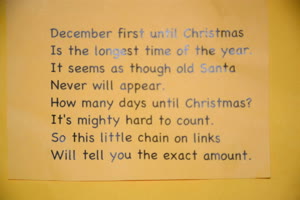 December first until Christmas
Is the longest time of the year.
It seems as though old Santa
Never will appear.
How many days until Christmas?
It's mighty hard to count.
So this little chain on links
Will tell you the exact amount.